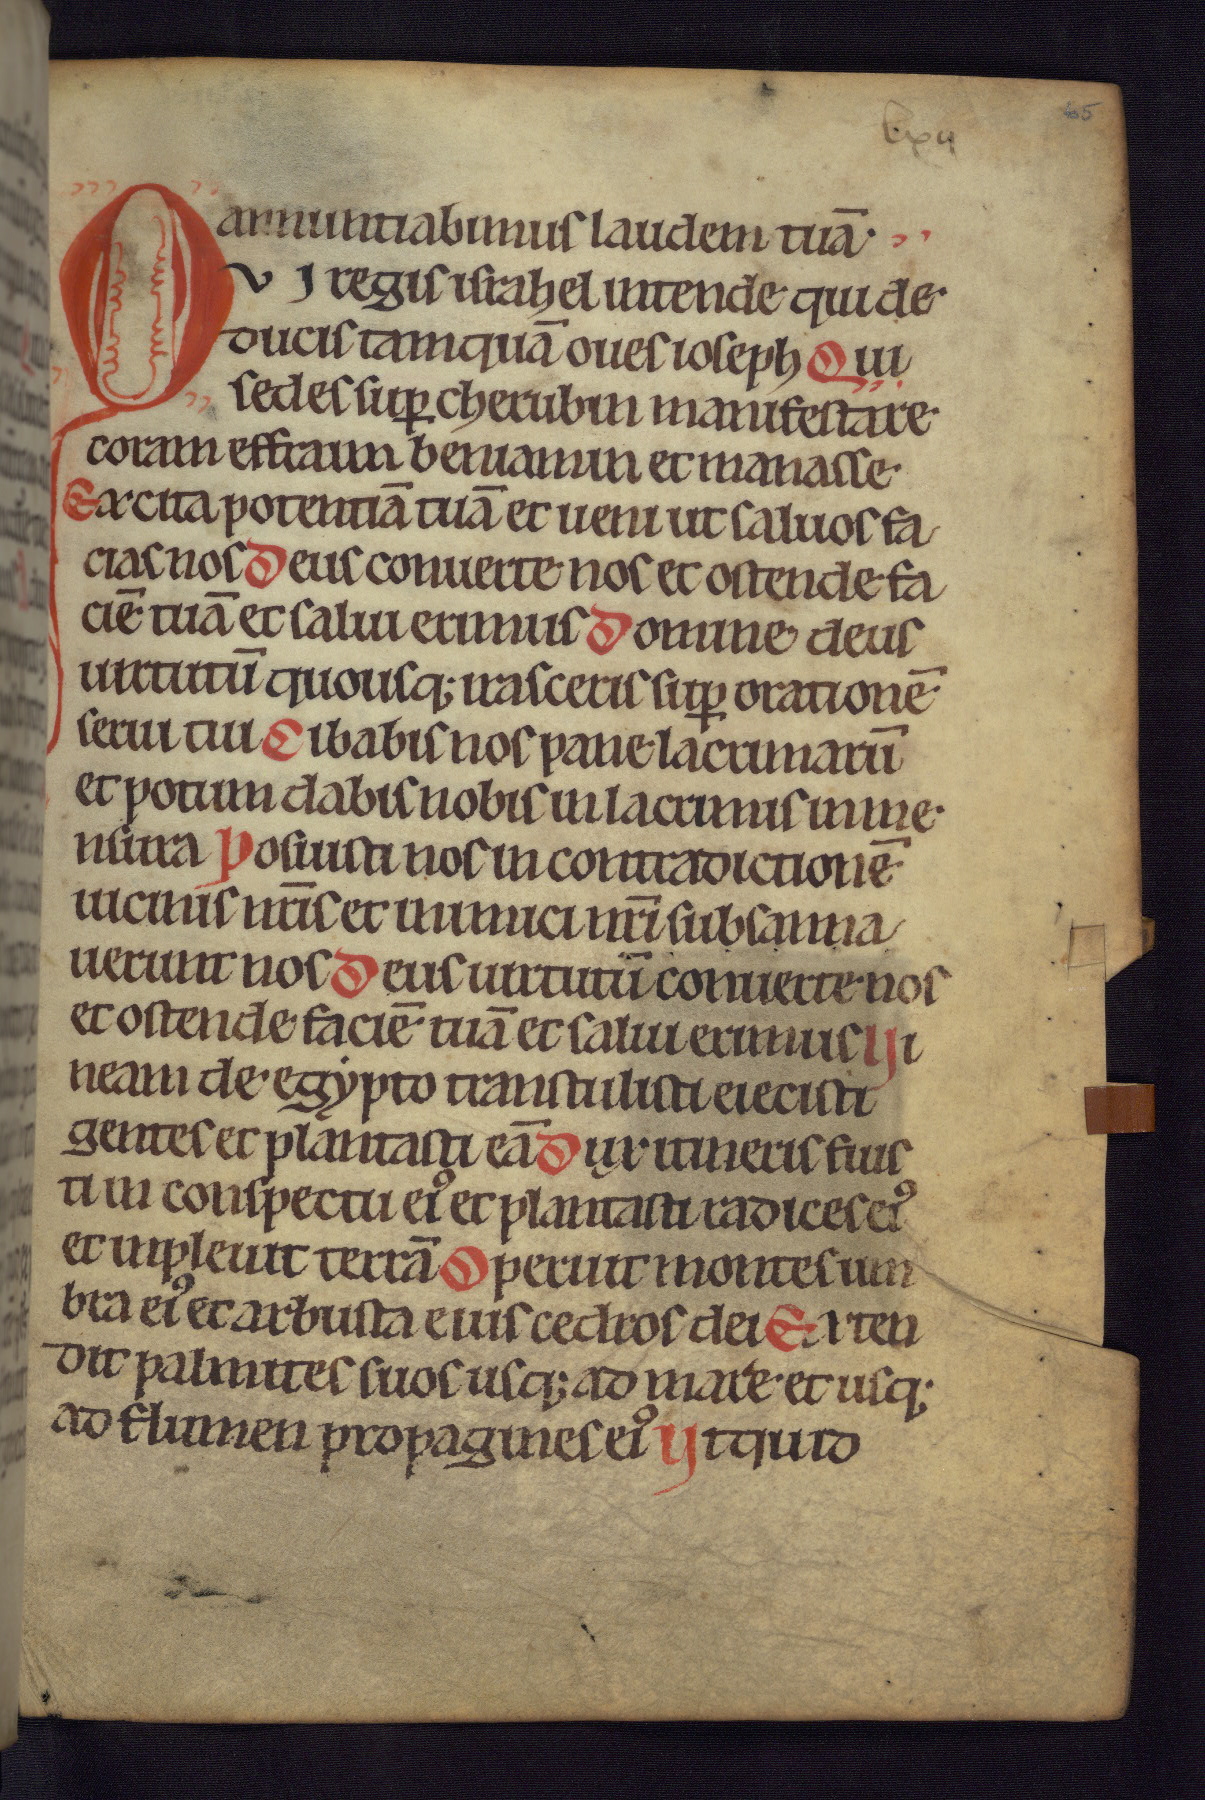 lxii
65
annuntiabimus laudem tuā·
QVI regis israhel intende qui de
ducis tamquā oues ioseph Qui
sedes suꝑ cherubin manifestare
coram effraim beniamin et manasse·
Excita potentiā tuā et ueni ut saluos fa
cias nos Deus conuerte nos et ostende fa
ciē tuā et salui erimus Domine deus
uirtutū quousq; irasceris suꝑ orationē
serui tui Cibabis nos pane lacrimarū
et potum dabis nobis in lacrimis in me
nsura Posuisti nos in contradictionē
uicinis nr̄is et inimici nr̄i subsanna
uerunt nos Deus uirtutū conuerte nos
et ostende faciē tuā et salui erimus Ui
neam de egẏpto transtulisti eiecisti
gentes et plantasti eā Dux itineris fuis
ti in conspectu eiꝰ et plantasti radices eiꝰ
et inpleuit terrā Operuit montes um
bra eiꝰ et arbusta eius cedros dei Exten
dit palmites suos usq; ad mare et usq;
ad flumen propagines eiꝰ Utquid